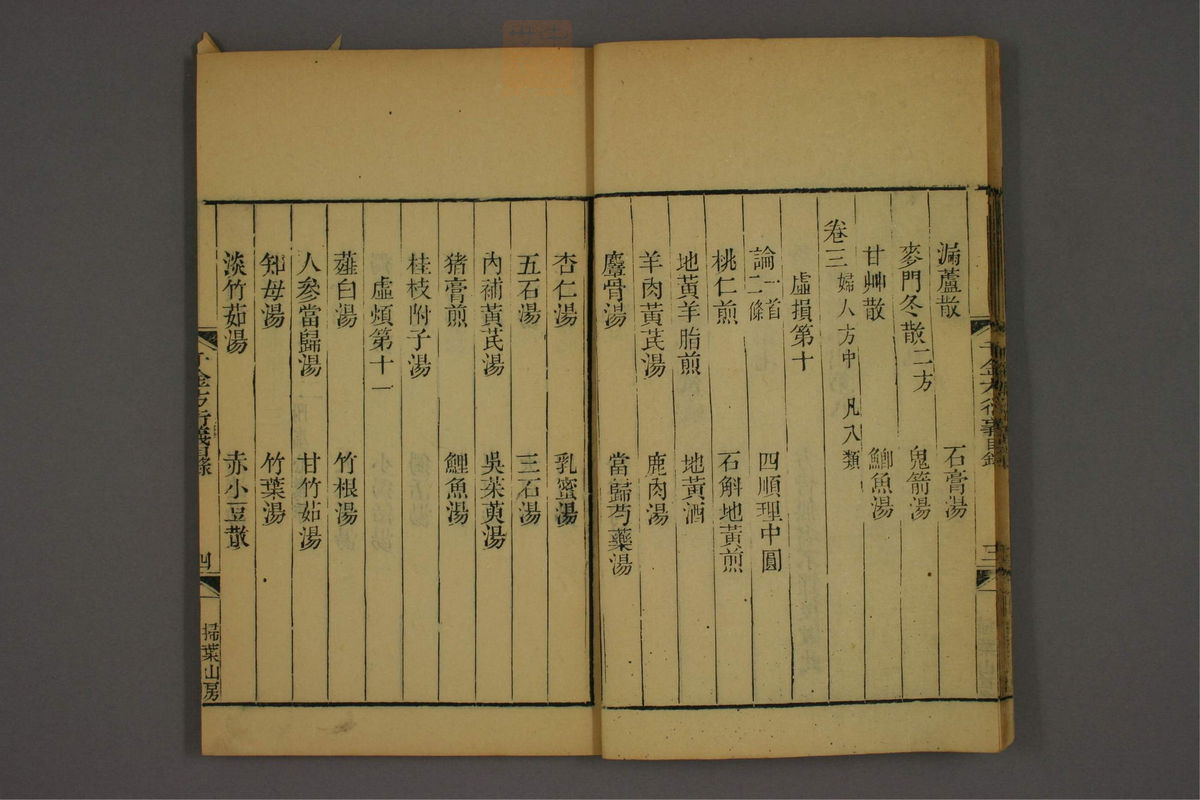 漏蘆散 石膏湯
麥門冬散二方 鬼箭湯
甘艸散 鯽魚湯
卷三 婦人方中 凡八類
虛損第十
論一首二條 四順理中圓
桃仁煎 石斛地黃煎
地黃羊脂煎 地黃酒
羊肉黃芪湯 鹿肉湯
麞骨湯 當歸芍藥湯
千金方衍義目錄 三
杏仁湯 乳蜜湯
五石湯 三石湯
內補黃芪湯 吳茱萸湯
猪膏煎 鯉魚湯
桂枝附子湯
虛煩第十一
薤白湯 竹根湯
人參當歸湯 甘竹茹湯
知母湯 竹葉湯
淡竹茹湯 赤小豆散
千金方衍義目錄 四 掃葉山房